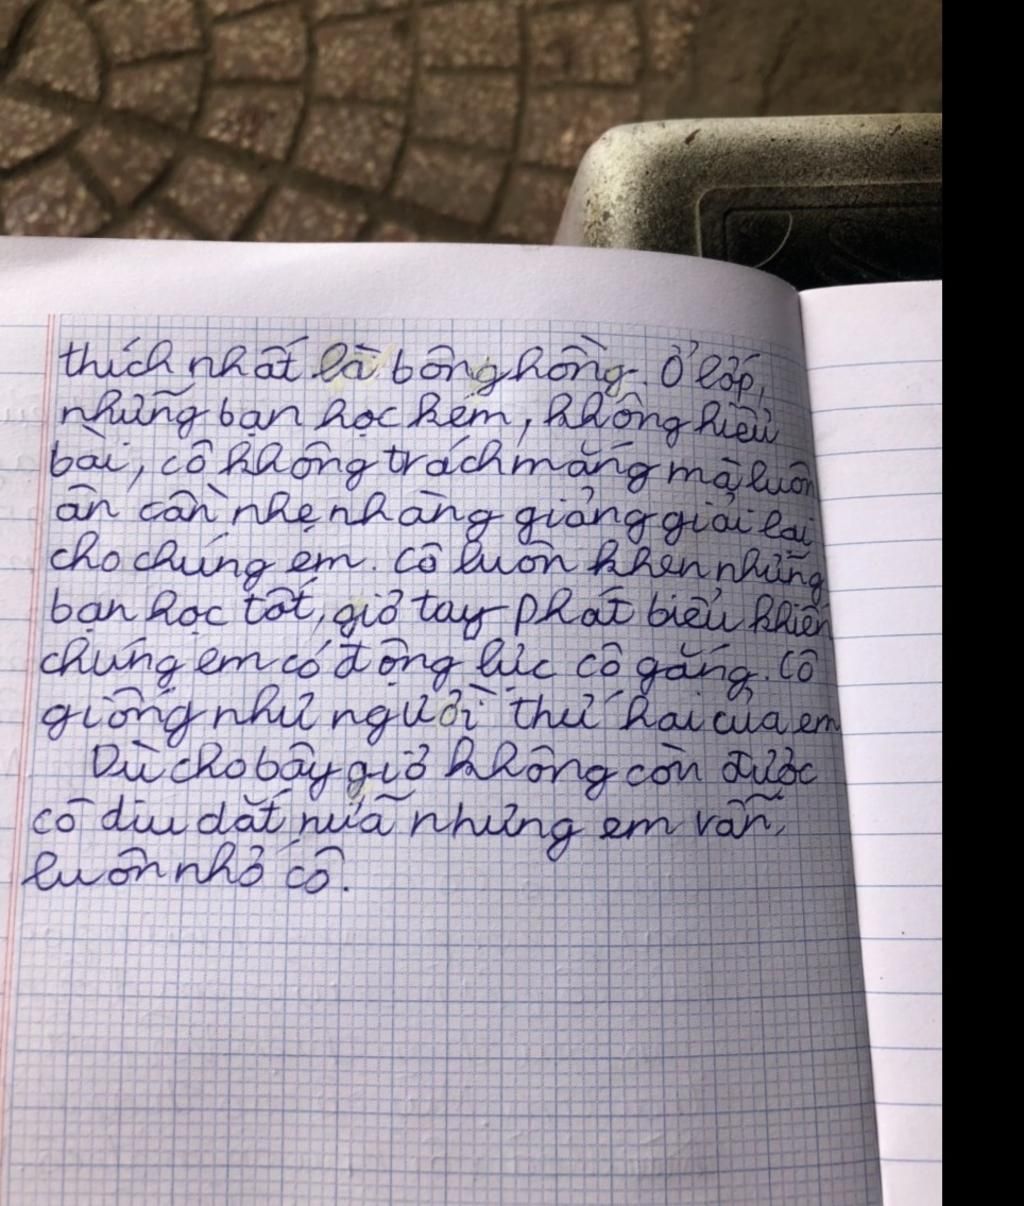 thích nhất là bông hồng. Ở lớp,
những bạn học kém, không hiểu
bài, cô không trách mắng mà luôn
ân cần nhẹ nhàng giảng giải lại
cho chúng em. Cô luôn khen những
bạn học tốt, giơ tay phát biểu khiến
chúng em có động lực cố gắng. Cô
giống như người thứ hai của em
Dù cho bây giờ không còn được
cô dìu dắt nữa nhưng em vẫn
luôn nhớ cô.